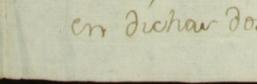 en dichas do